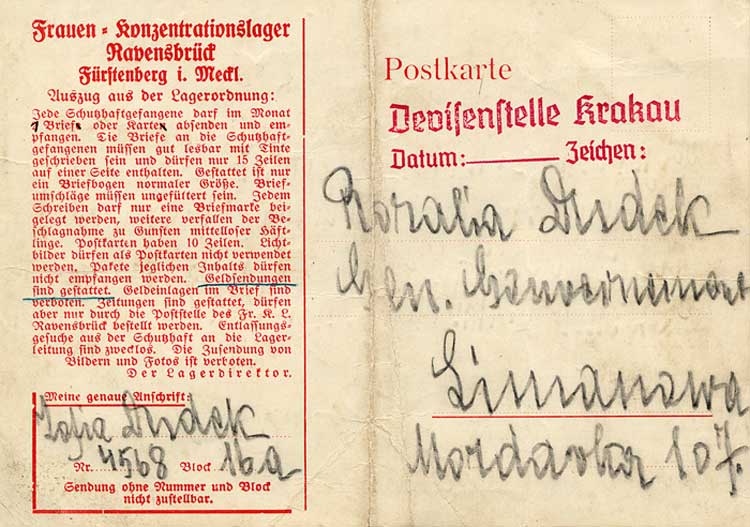 Frauen-Konzentrationslager
Ravensbrück
Fürstenberg i. Meckl.
Auszug aus der Lagerordnung:
Jede Schutzhaftgefangene darf im Monat
1 Brief oder Karte absenden und em-
pfangen. Die Briefe an die Schutzhaft-
gefangenen müssen gut lesbar mit Tinte
geschrieben sein und dürfen nur 15 Zeilen
auf einer Seite enthalten. Gestattet ist nur
ein Briefbogen normaler Größe. Brief-
umschläge müssen ungefüttert sein. Jedem
Schreiben darf nur eine Briefmarke bei-
gelegt werden, weitere verfallen der Be-
schlagnahme zu Gunsten mittelloser Häft-
linge. Postkarten haben 10 Zeilen. Licht-
bilder dürfen als Postkarten nicht verwendet
werden. Pakete jeglichen Inhalts dürfen
nicht empfangen werden. Geldsendungen
sind gestattet. Geldeinlagen im Brief sind
verboten. Zeitungen sind gestattet, dürfen
aber nur durch die Poststelle des Fr. K. L.
Ravensbrück bestellt werden. Entlassungs-
gesuche aus der Schutzhaft an die Lager-
leitung sind zwecklos. Die Zusendung von
Bildern und Fotos ist verboten.
Der Lagerdirektor.
Meine genaue Anschrift:
Zofia Dudek
Nr. 4568 Block 16a
Sendung ohne Nummer und Block
nicht zustellbar.
Postkarte
Devisenstelle Krakau
Datum: Zeichen:
Rozalia Dudek
Gen. Gouvernement
Limanowa
Mordarka 107.